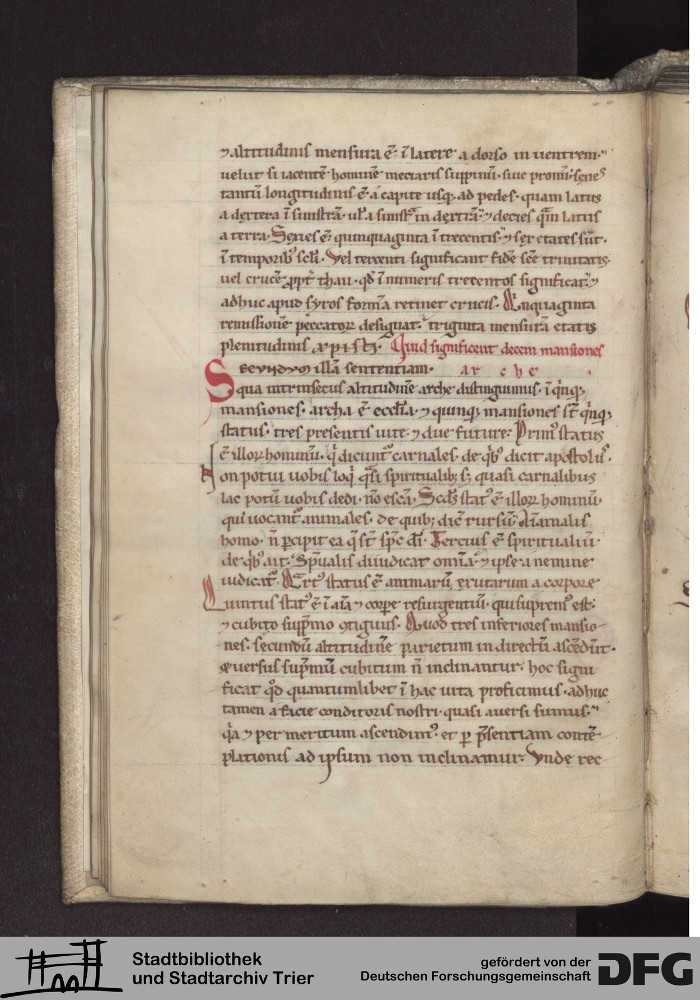 ⁊ altitudinis mensura ē· ī latere a dorso in uentrem·
uelut si iacentē hominē metiaris suppinū· siue pronū· senes
tantū longitudinis ē· a capite usq; ad pedes· quam latus
a dextera ī sinistrā· ul' a sinistra in dextrā· ⁊ decies qm̄ latus
a terra· Sexies ē quinquaginta ī trecentis· ⁊ sex etates sūt·
ī temporib; sc̄li· Vel trecenti significant fidē sc̄e trinitatis·
uel crucē ꝓpt̄ thau· qd̄ ī numeris trecentos significat· ⁊
adhuc apud syros formā retinet crucis· Quinquaginta
remissionē peccator desiguat· triginta mensurā etatis
plenitudinis xpisti· Quid significent decem mansiones
Secundum illā sententiam· arche·
qua intrinsecus altitudinē arche distinguimus· ī qnq;
mansiones· archa ē eccl'ia· ⁊ quinq; mansiones st̄ qnq;
status· tres presentis uite· ⁊ due future· Prim' status
ē illor hominū· qi dicunt' carnales· de qb; dicit apostol'·
Non potui uobis loqi qsi spiritualib; s; quasi carnalibus
lac potū uobis dedi· nō escā· Scds stat' ē illor hominū·
qui uocant' animales· de quib; dic̄ rursū· Animalis
homo· n̄ ꝑcipit ea q̄ st̄ sp̄c dī· Tercius ē spiritualiū·
de qb; ait· Sp̄ualis diiudicat omīa· ⁊ ipse a nemine
iudicat'· Qrt' status ē animarū exutarum a corpore
Quintus stat' ē ī aīa ⁊ corꝑe resurgentiū· qui suprem' est·
⁊ cubito supp̄mo ꝯtiguus· Quod tres inferiores mansio-
nes· secundū altitudinē parietum in directū ascēdūt·
⁊ uersus sup̄mū cubitum n̄ inclinantur· hoc signi
ficat qd̄ quantumlibet ī hac uita proficimus· adhuc
tamen a facie conditoris nostri· quasi auersi sumus·
qa ⁊ per meritum ascendim'· et ꝑ p̄sentiam contē-
plationis ad ipsum non inclinamur· Vnde rec
Stadtbibliothek
und Stadtarchiv Trier
gefördert von der
Deutschen Forschungsgemeinschaft
DFG